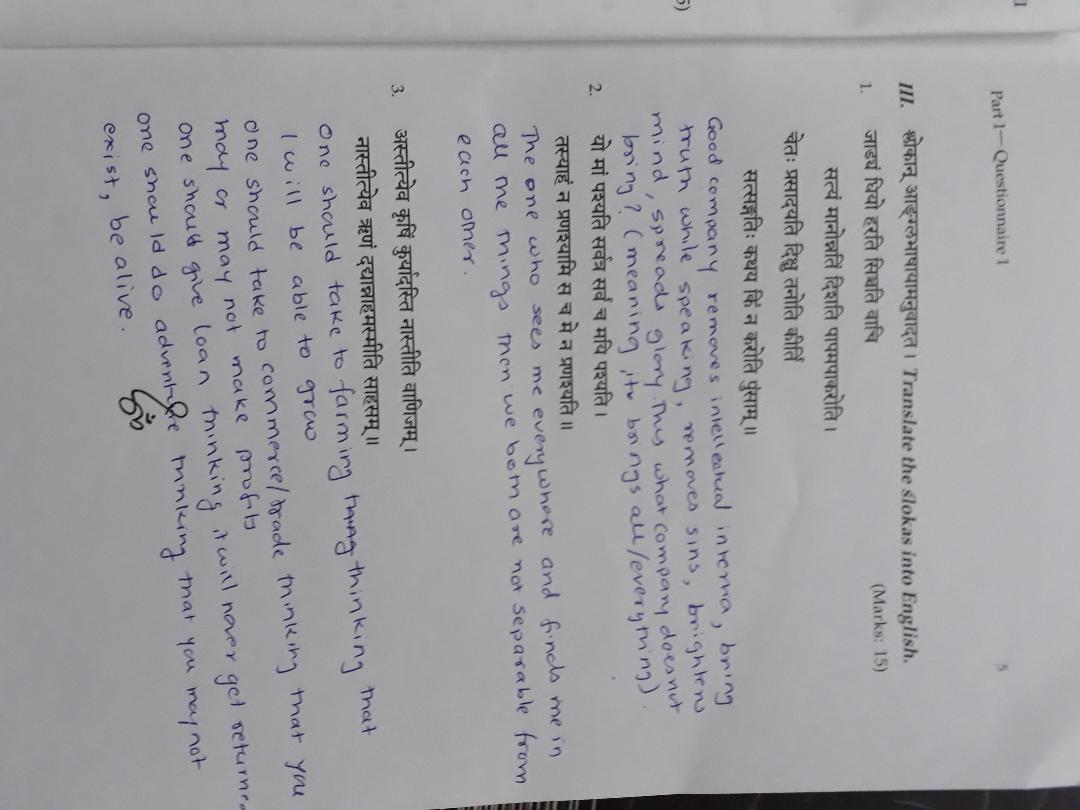 Part 1—Questionnaire 1
5
III. श्लोकान् आङ्ग्लभाषायामनुवादत। Translate the ślokas into English.
(Marks: 15)
1. जाड्यं धियो हरति सिञ्चति वाचि
सत्यं मानोन्नतिं दिशति पापमपाकरोति।
चेतः प्रसादयति दिक्षु तनोति कीर्तिं
सत्सङ्गतिः कथय किं न करोति पुंसाम्॥
Good company removes intellectual interna, bring
truth while speaking, removes sins, brightens
mind, spreads glory. Thus what company does not
bring? (meaning, it brings all/everything).
2. यो मां पश्यति सर्वत्र सर्वं च मयि पश्यति।
तस्याहं न प्रणश्यामि स च मे न प्रणश्यति॥
The one who sees me everywhere and finds me in
all the things then we both are not separable from
each other.
3. अस्तीत्येव कृषिं कुर्यादस्ति नास्तीति वाणिजम्।
नास्तीत्येव ऋणं दद्यान्नाहमस्मीति साहसम्॥
One should take to farming thinking that
I will be able to grow
One should take to commerce/trade thinking that you
may or may not make profits
One should give loan thinking it will never get returned
One should do adventure thinking that you may not
exist, be alive.
ॐ
5)
I